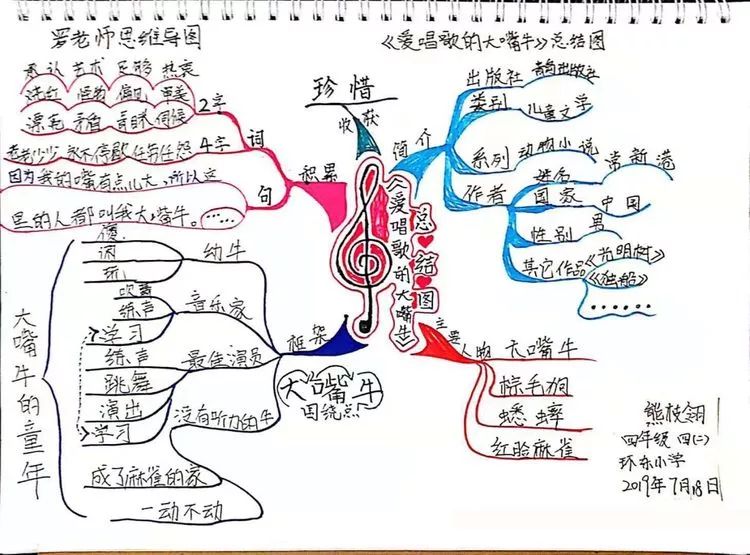 罗老师思维导图
《爱唱歌的大嘴牛》总结图
珍惜
收获
简介
出版社
类别
儿童文学
系列
动物小说
作者
姓名
常新港
国家
中国
性别
男
其它作品
《光明树》
《独船》
……
承认 艺术 足够 热衷
怪物 偏见
漂亮 矛盾 伺候
2字
老老少少 永不停歇 任劳任怨
4字
词
因为我的嘴有点儿大，所以这
里的人都叫我大嘴牛。
……
句
积累
《爱唱歌的大嘴牛》
总结图
主要
人物
大嘴牛
棕毛狗
蟋蟀
红脸麻雀
框架
大嘴牛
围绕点
幼牛
傻
闹
玩
音乐家
吹声
练声
学习
最佳演员
练声
跳舞
演出
学习
没有听力的牛
成了麻雀的家
一动不动
大嘴牛的童年
熊枝翎
四年级 四(二)
环东小学
2019年7月18日